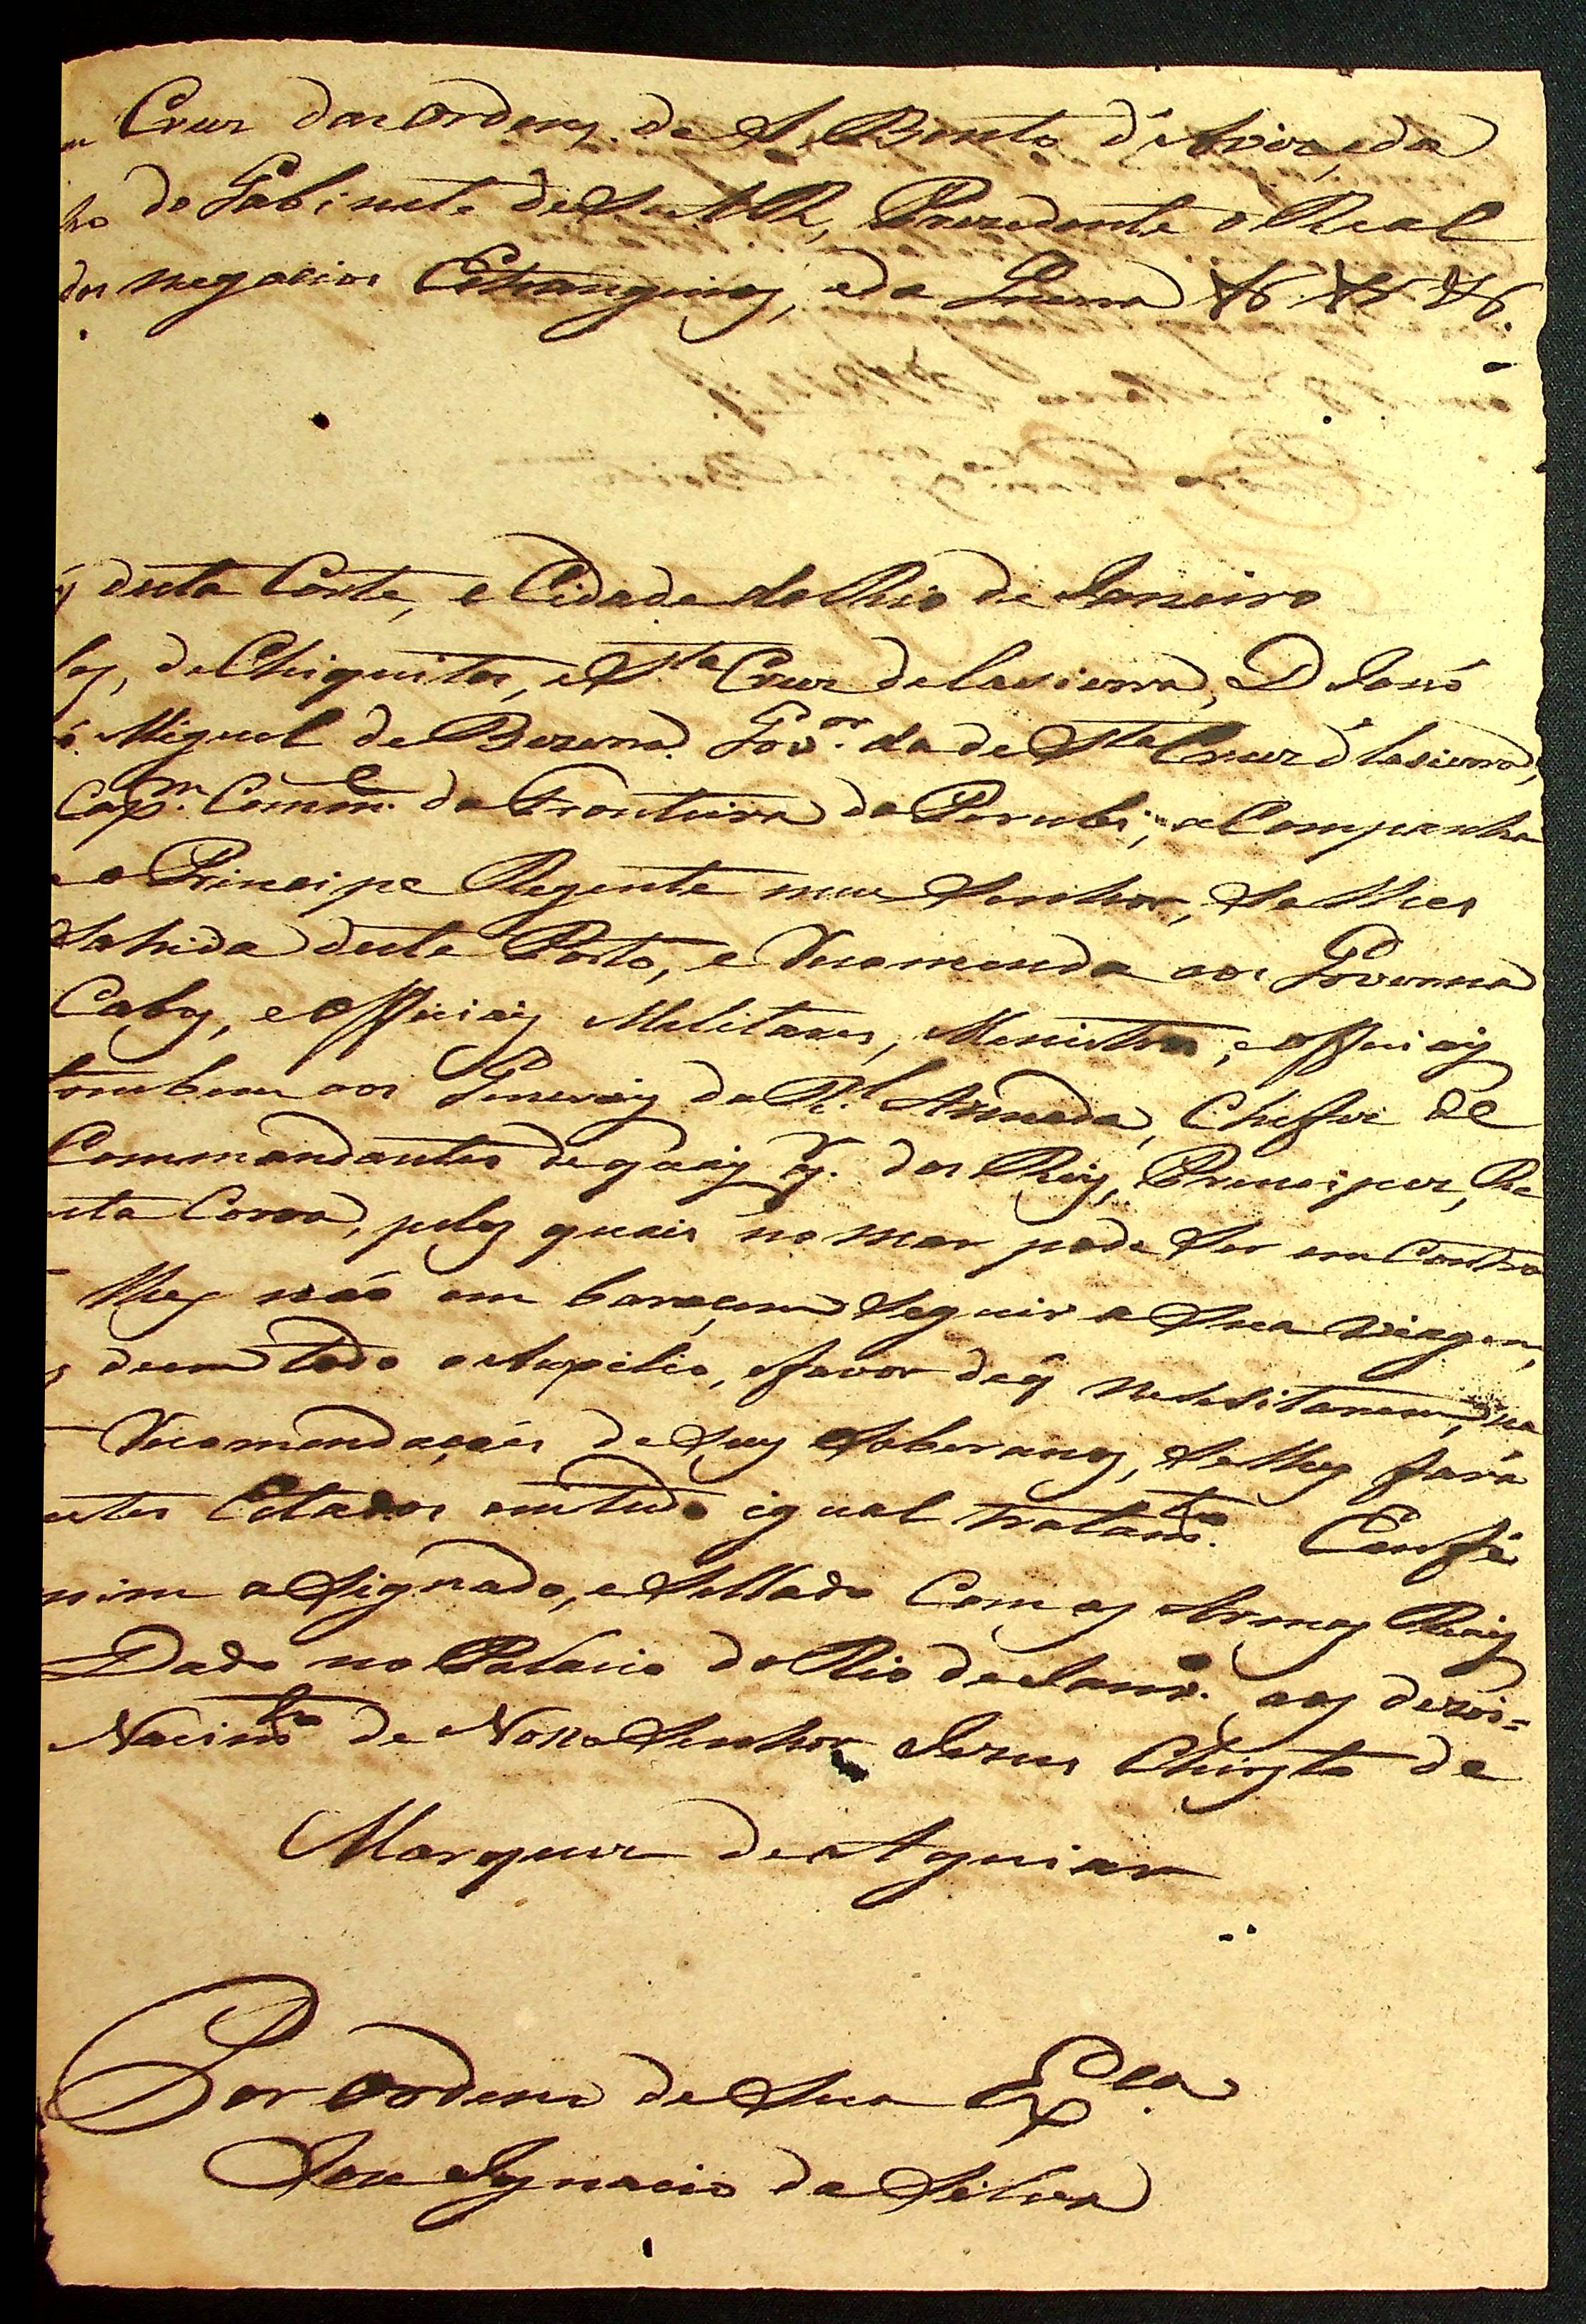 Cruz das Ordens de S. Bento d'Aviz, e da
do Gabinete de S. A. R, Prezidente o Real
dos negocios Estrangeiros, e da Guerra & & &.
desta Corte, e Cidade do Rio de Janeiro
los, de Chiquitos, e S.ta Cruz de lasierra, D Jozé
Miguel de Bezerra. Gov.or da de S.ta Cruz d'lasierra,
Cap.m Comm.e da Fronteira do Porubi, e Companha
e o Principe Regente meu Senhor, Se lhes
Sahida deste Porto, e Recomenda aos Governa
Cabos, e officiais Melitares, Menistros, e officiais
tombem aos Generais da R.l Armada, Cheffes de
Commandantes de quais q.r dos Reis, Principes, Re
esta Coroa, pelos quais no mar pode Ser em Contra
lhes não em baracem Seguir a Sua viagem,
deem todo o Auxilio, e favor de q̃ nesesitarem, na
Recomendações de Seus Soberanos, Se lhes fará
estes Estados em tudo igual tratam.to Em fé
mim aSignado, e Sellado Com as Armas Reais
Dado no Palacio do Rio de Janr.o aos dezoi=
Nacim.to de Nosso Senhor Jezus Christo de
Marquez de Aguiar
Por ordem de Sua Ex.cia
Joze Ignacio da Silva